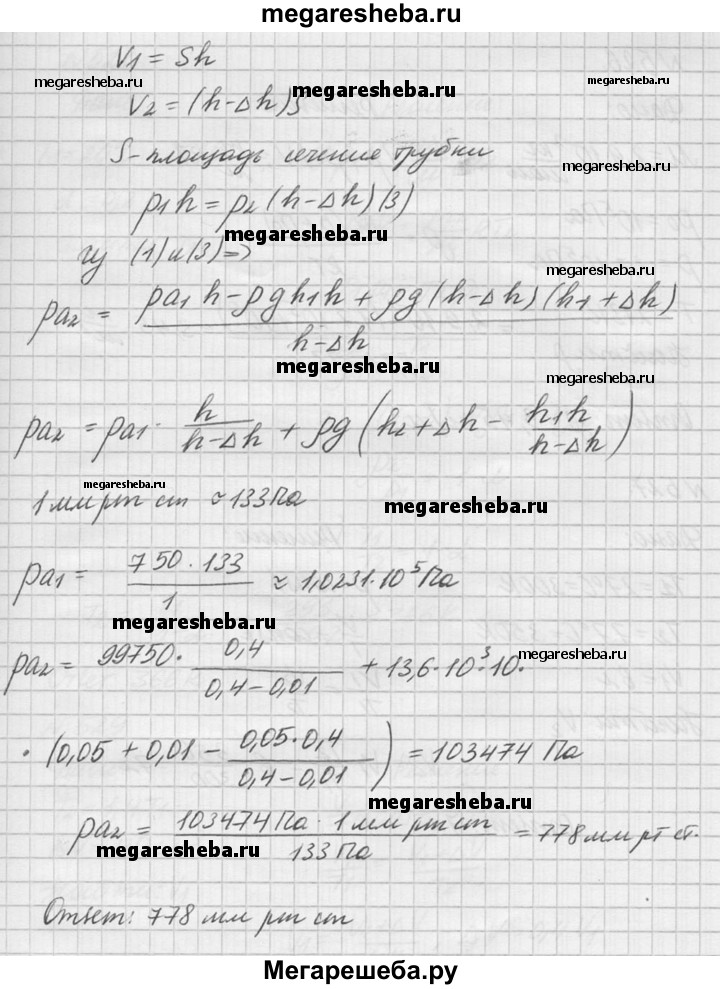 megaresheba.ru
V1 = Sh
megaresheba.ru
megaresheba.ru
megaresheba.ru
V2 = (h-Δh)S
S-площадь сечение трубки
megaresheba.ru
p1h = p2(h-Δh)(3)
megaresheba.ru
(1)и(3)=>
megaresheba.ru
pa2 = (pa1 h - ρgh1h + ρg(h-Δh)(h1+Δh)) / (h-Δh)
megaresheba.ru
megaresheba.ru
pa2 = pa1 · h/(h-Δh) + ρg(h2+Δh - h1h/(h-Δh))
megaresheba.ru
1 мм рт ст ≈ 133Па
megaresheba.ru
pa1 = (750·133)/1 ≈ 1,0231·10^5 Па
megaresheba.ru
pa2 = 99750 · 0,4/(0,4-0,01) + 13,6·10^3·10·
megaresheba.ru
· (0,05 + 0,01 - (0,05·0,4)/(0,4-0,01)) = 103474 Па
megaresheba.ru
pa2 = (103474 Па · 1 мм рт ст)/(133 Па) = 778 мм рт ст.
megaresheba.ru
Ответ: 778 мм рт ст
Мегарешеба.ру